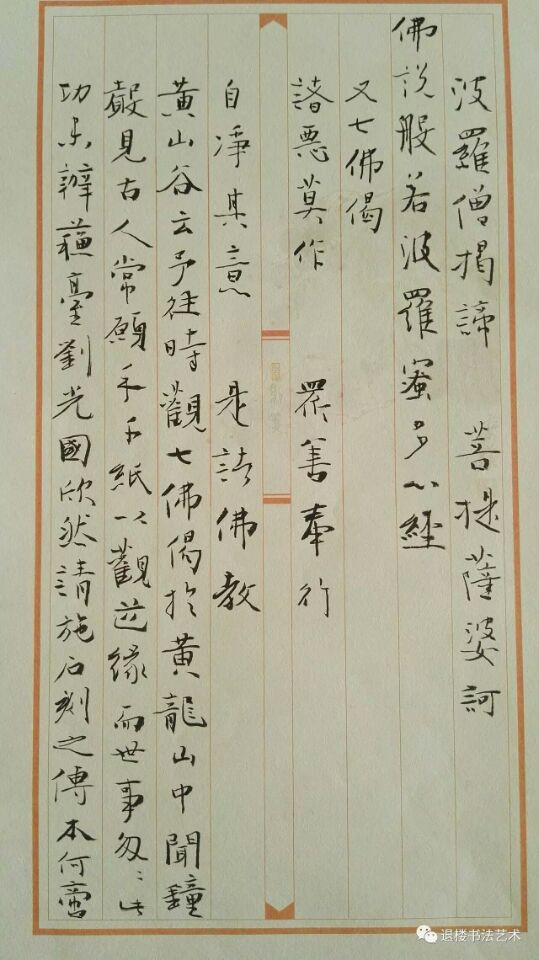 波羅僧揭諦 菩提薩婆訶
佛説般若波羅蜜多心經
又七佛偈
諸惡莫作 眾善奉行
自淨其意 是諸佛教
黄山谷云予往時觀七佛偈於黄龍山中聞鐘
聲見古人常願手千紙以觀迆緣而世事匆〻此
功未辦蘓臺劉光國欣然請施石刻之傳本何啻
退楼书法艺术